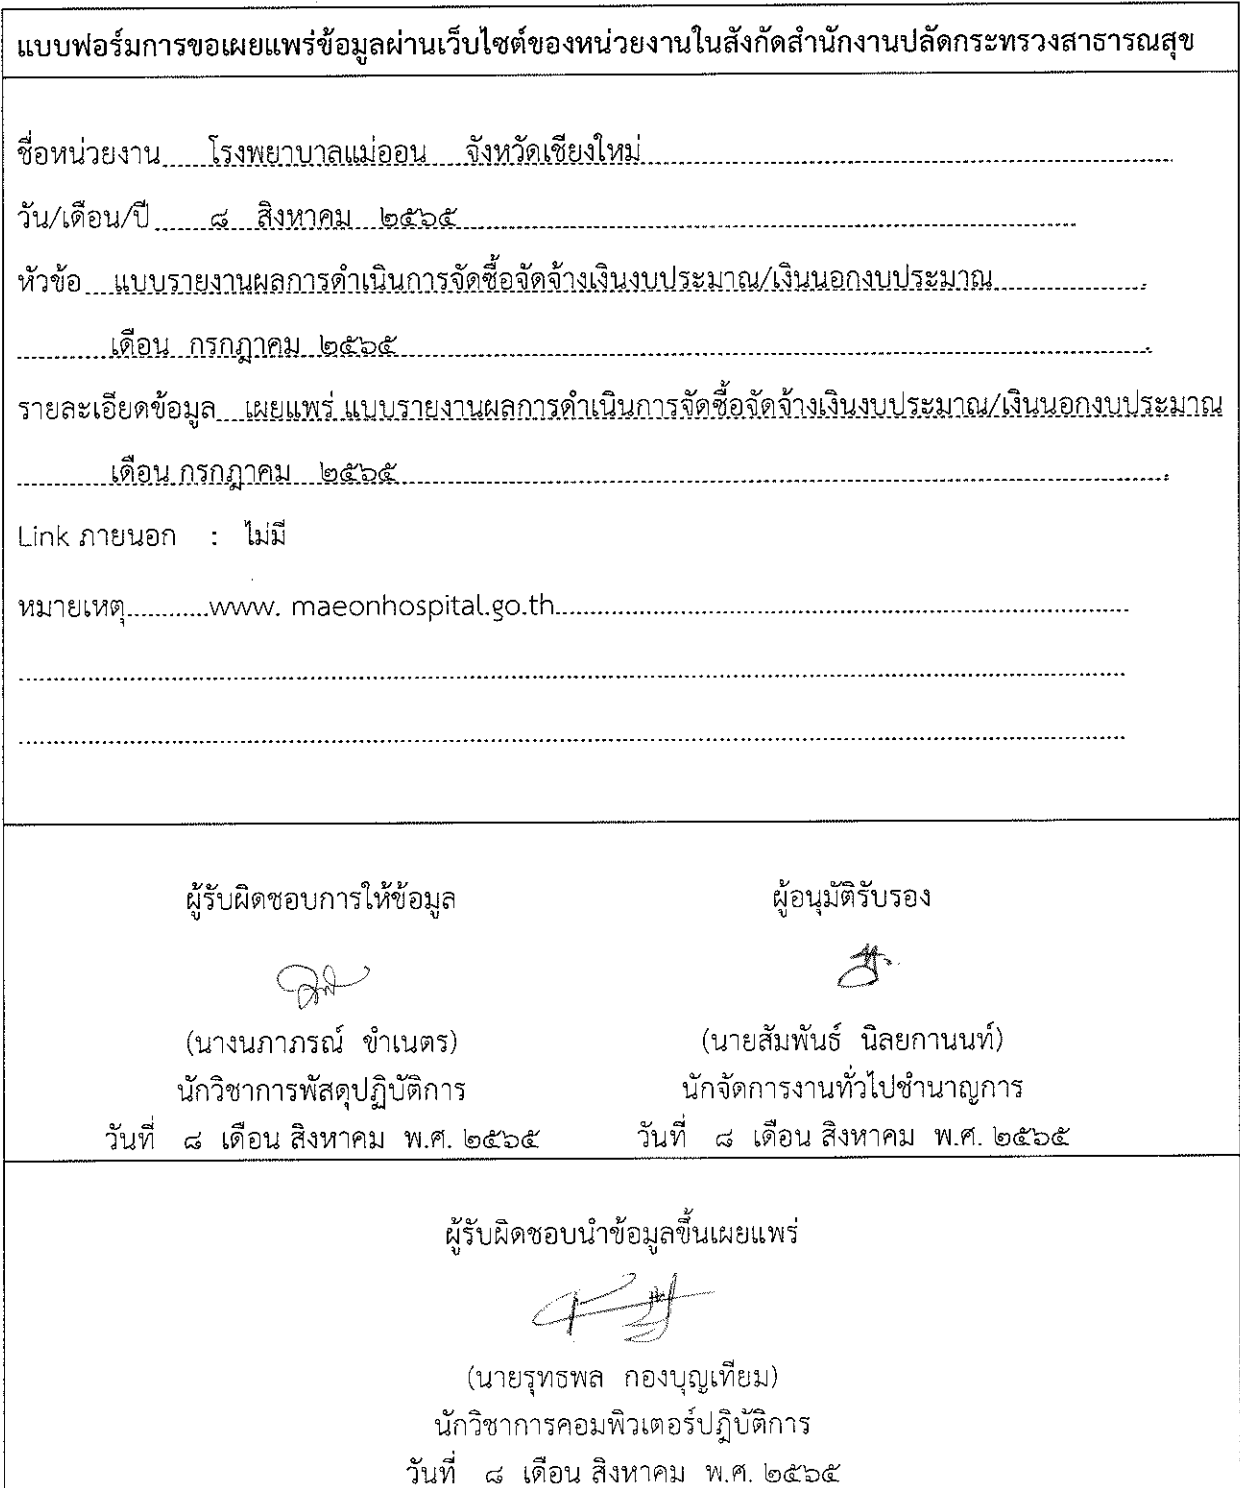 แบบฟอร์มการขอเผยแพร่ข้อมูลผ่านเว็บไซต์ของหน่วยงานในสังกัดสำนักงานปลัดกระทรวงสาธารณสุข
ชื่อหน่วยงาน......โรงพยาบาลแม่ออน จังหวัดเชียงใหม่......
วัน/เดือน/ปี......๘ สิงหาคม ๒๕๖๕......
หัวข้อ....แบบรายงานผลการดำเนินการจัดซื้อจัดจ้างเงินงบประมาณ/เงินนอกงบประมาณ......
......เดือน กรกฎาคม ๒๕๖๕......
รายละเอียดข้อมูล....เผยแพร่ แบบรายงานผลการดำเนินการจัดซื้อจัดจ้างเงินงบประมาณ/เงินนอกงบประมาณ
......เดือน กรกฎาคม ๒๕๖๕......
Link ภายนอก : ไม่มี
หมายเหตุ...........www. maeonhospital.go.th......
ผู้รับผิดชอบการให้ข้อมูล ผู้อนุมัติรับรอง
(นางนภาภรณ์ ขำเนตร) (นายสัมพันธ์ นิลยกานนท์)
นักวิชาการพัสดุปฏิบัติการ นักจัดการงานทั่วไปชำนาญการ
วันที่ ๘ เดือน สิงหาคม พ.ศ. ๒๕๖๕ วันที่ ๘ เดือน สิงหาคม พ.ศ. ๒๕๖๕
ผู้รับผิดชอบนำข้อมูลขึ้นเผยแพร่
(นายรุทธพล กองบุญเทียม)
นักวิชาการคอมพิวเตอร์ปฏิบัติการ
วันที่ ๘ เดือน สิงหาคม พ.ศ. ๒๕๖๕